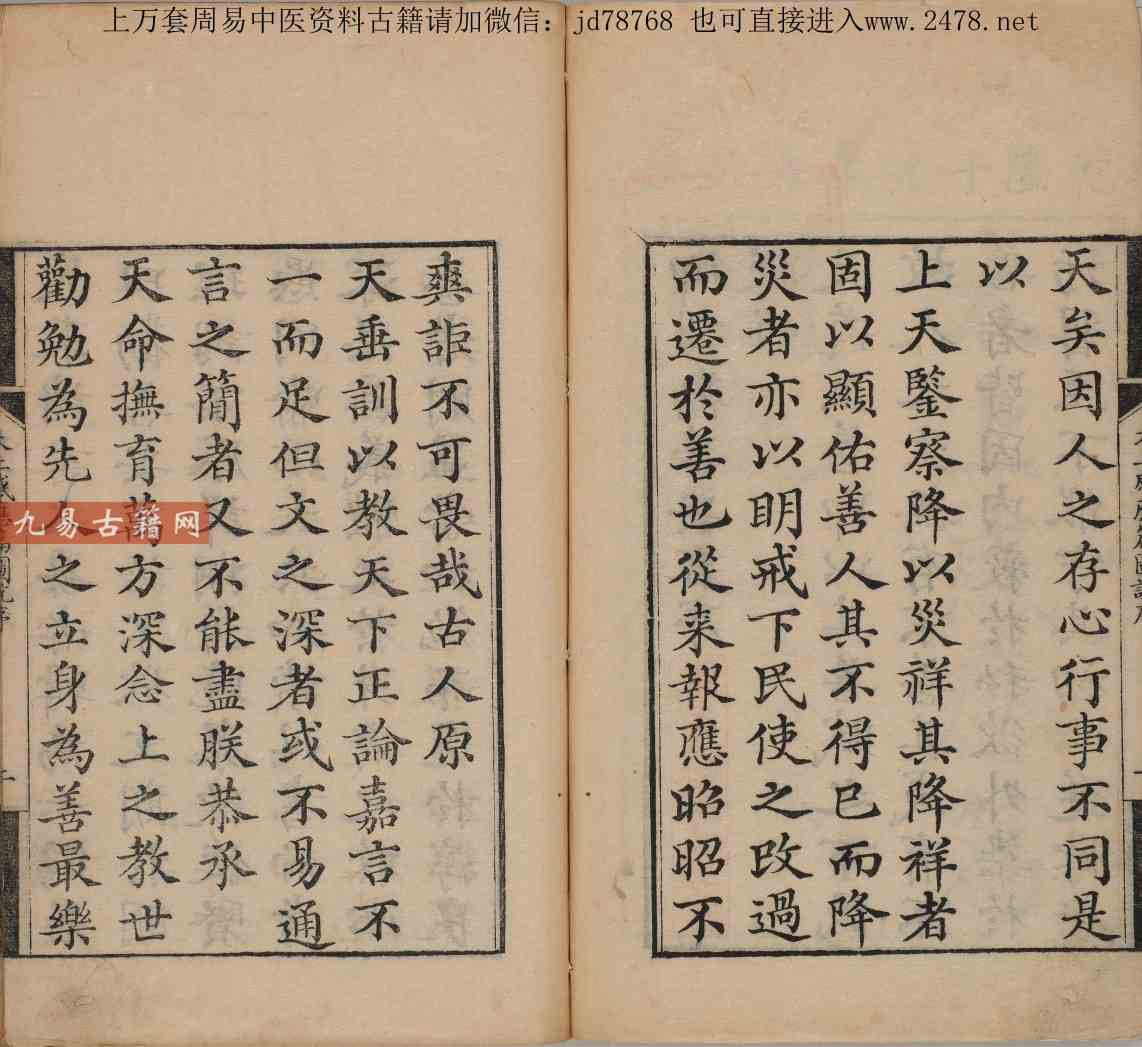 上万套周易中医资料古籍请加微信：jd78768 也可直接进入www.2478.net
天矣因人之存心行事不同是
以
上天鑒察降以災祥其降祥者
固以顯佑善人其不得已而降
災者亦以明戒下民使之改過
而遷於善也從来報應昭昭不
爽詎不可畏哉古人原
天垂訓以教天下正論嘉言不
一而足但文之深者或不易通
言之簡者又不能盡朕恭承
天命撫育萬方深念上之教世
勸勉為先人之立身為善最樂
九易古籍网